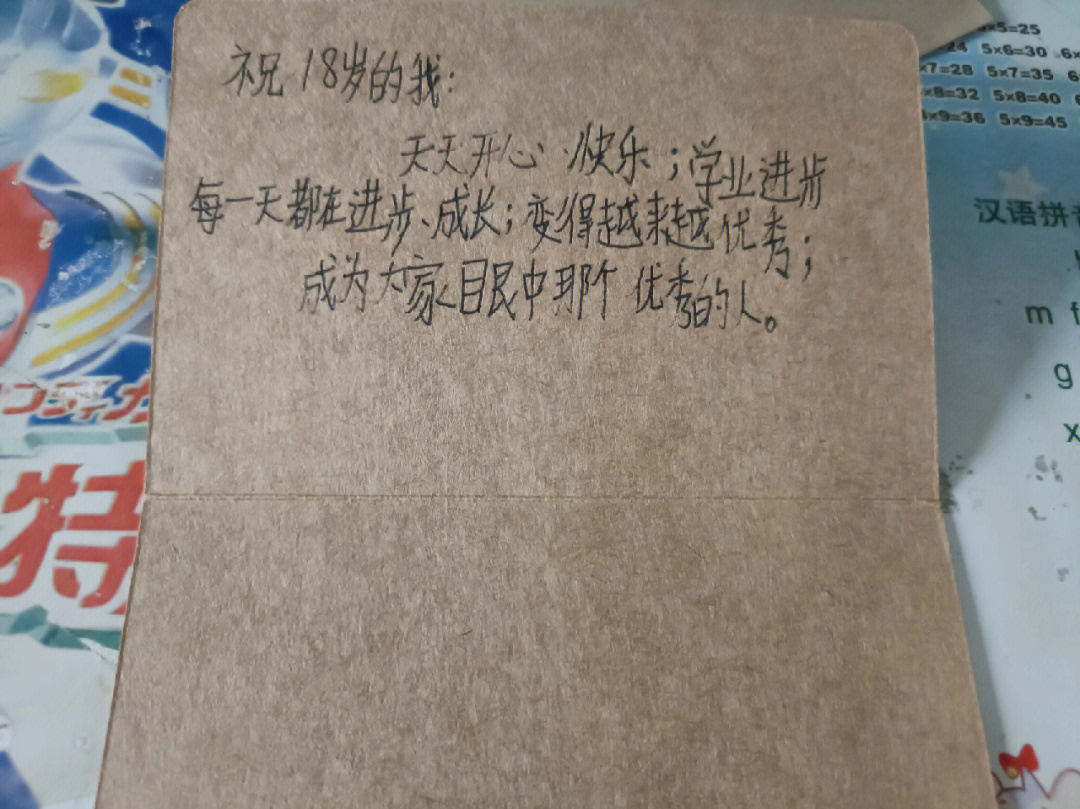 祝18岁的我:
天天开心、快乐;学业进步
每一天都在进步、成长;变得越来越优秀;
成为大家眼中那个优秀的人。
5=25
24 5×6=30 6×
7=28 5×7=35 6
×8=32 5×8=40 6
×9=36 5×9=45
汉语拼
m f
g
x
特